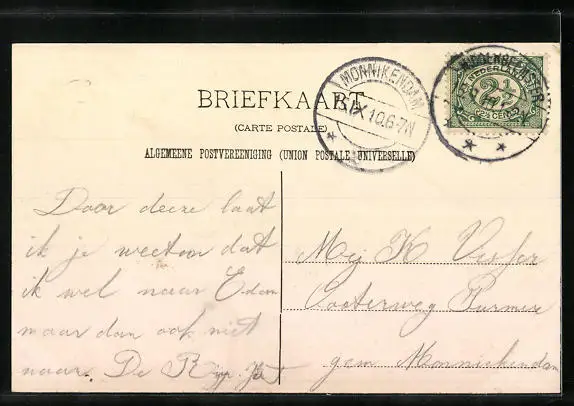 BRIEFKAART
(CARTE POSTALE)
ALGEMEENE POSTVEREENIGING (UNION POSTALE UNIVERSELLE)
MONNIKENDAM
IX 10.6-7N
MIDDENBEEMSTER
NEDERLAND
2½
CENT
Door deeze laat
ik je weeten dat
ik wel naar Edam
maar dan ook niet
naar De Rijp.
Mej K Visser
Oosterweg Purmer
gem Monnickendam